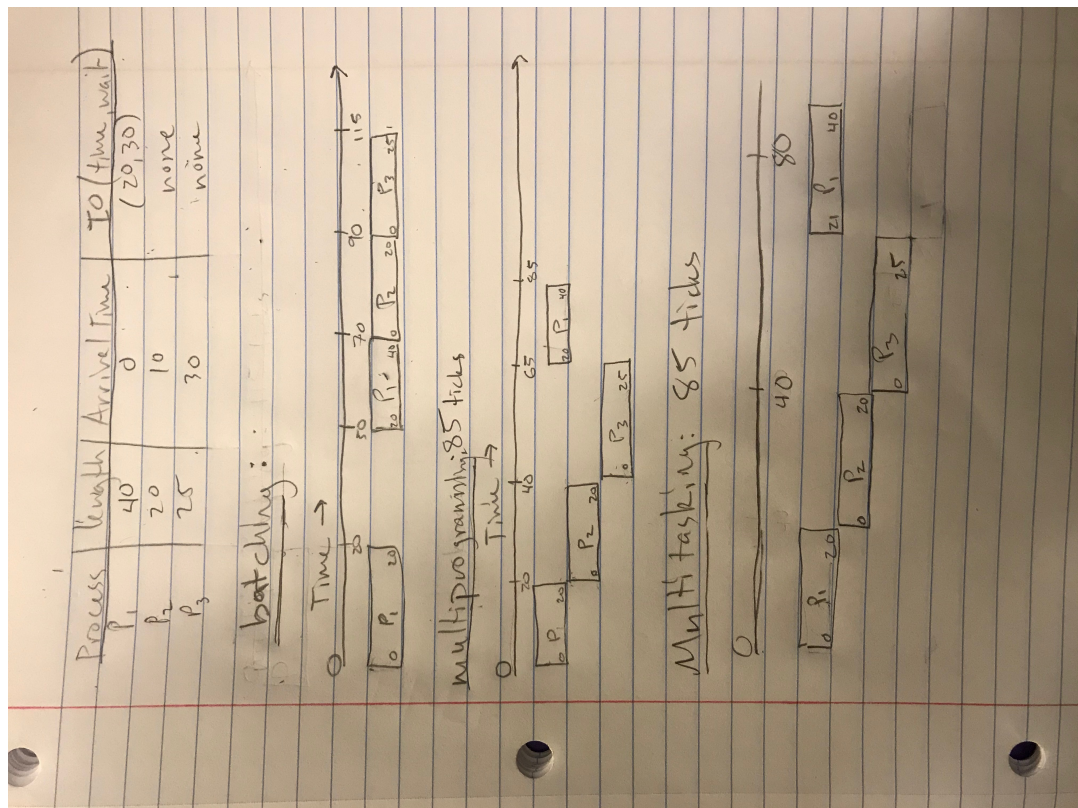 Process | length | Arrival Time | IO (time, wait)
P1 40 0 (20,30)
P2 20 10 none
P3 25 30 none
batching:
Time →
0 20 50 70 90 115
0 P1 20 20 P1 40 0 P2 20 0 P3 25
multiprogramming: 85 ticks
Time →
0 20 40 65 85
0 P1 20 20 P1 40
0 P2 20
0 P3 25
Multitasking: 85 ticks
0 40 80
0 P1 20 21 P1 40
0 P2 20
0 P3 25